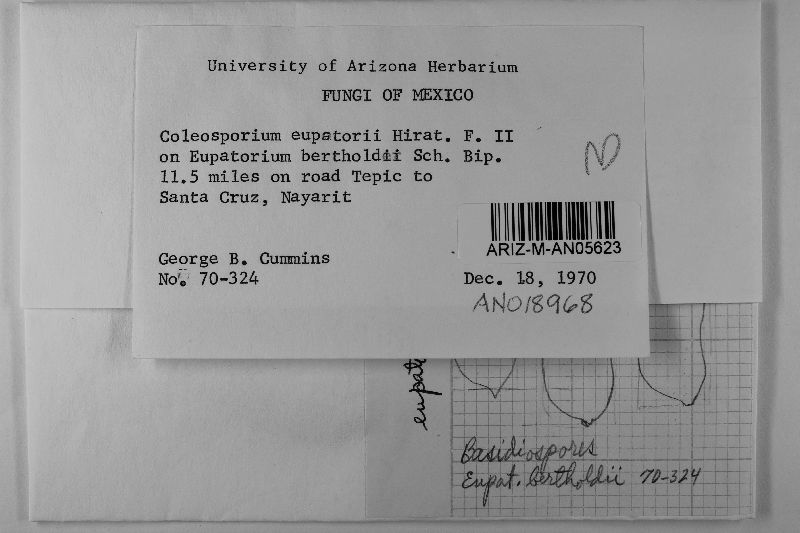 University of Arizona Herbarium
FUNGI OF MEXICO
Coleosporium eupatorii Hirat. F. II
on Eupatorium bertholdii Sch. Bip.
11.5 miles on road Tepic to
Santa Cruz, Nayarit
ARIZ-M-AN05623
George B. Cummins
No. 70-324
Dec. 18, 1970
AN018968
Basidiospores
Eupat. bertholdii 70-324